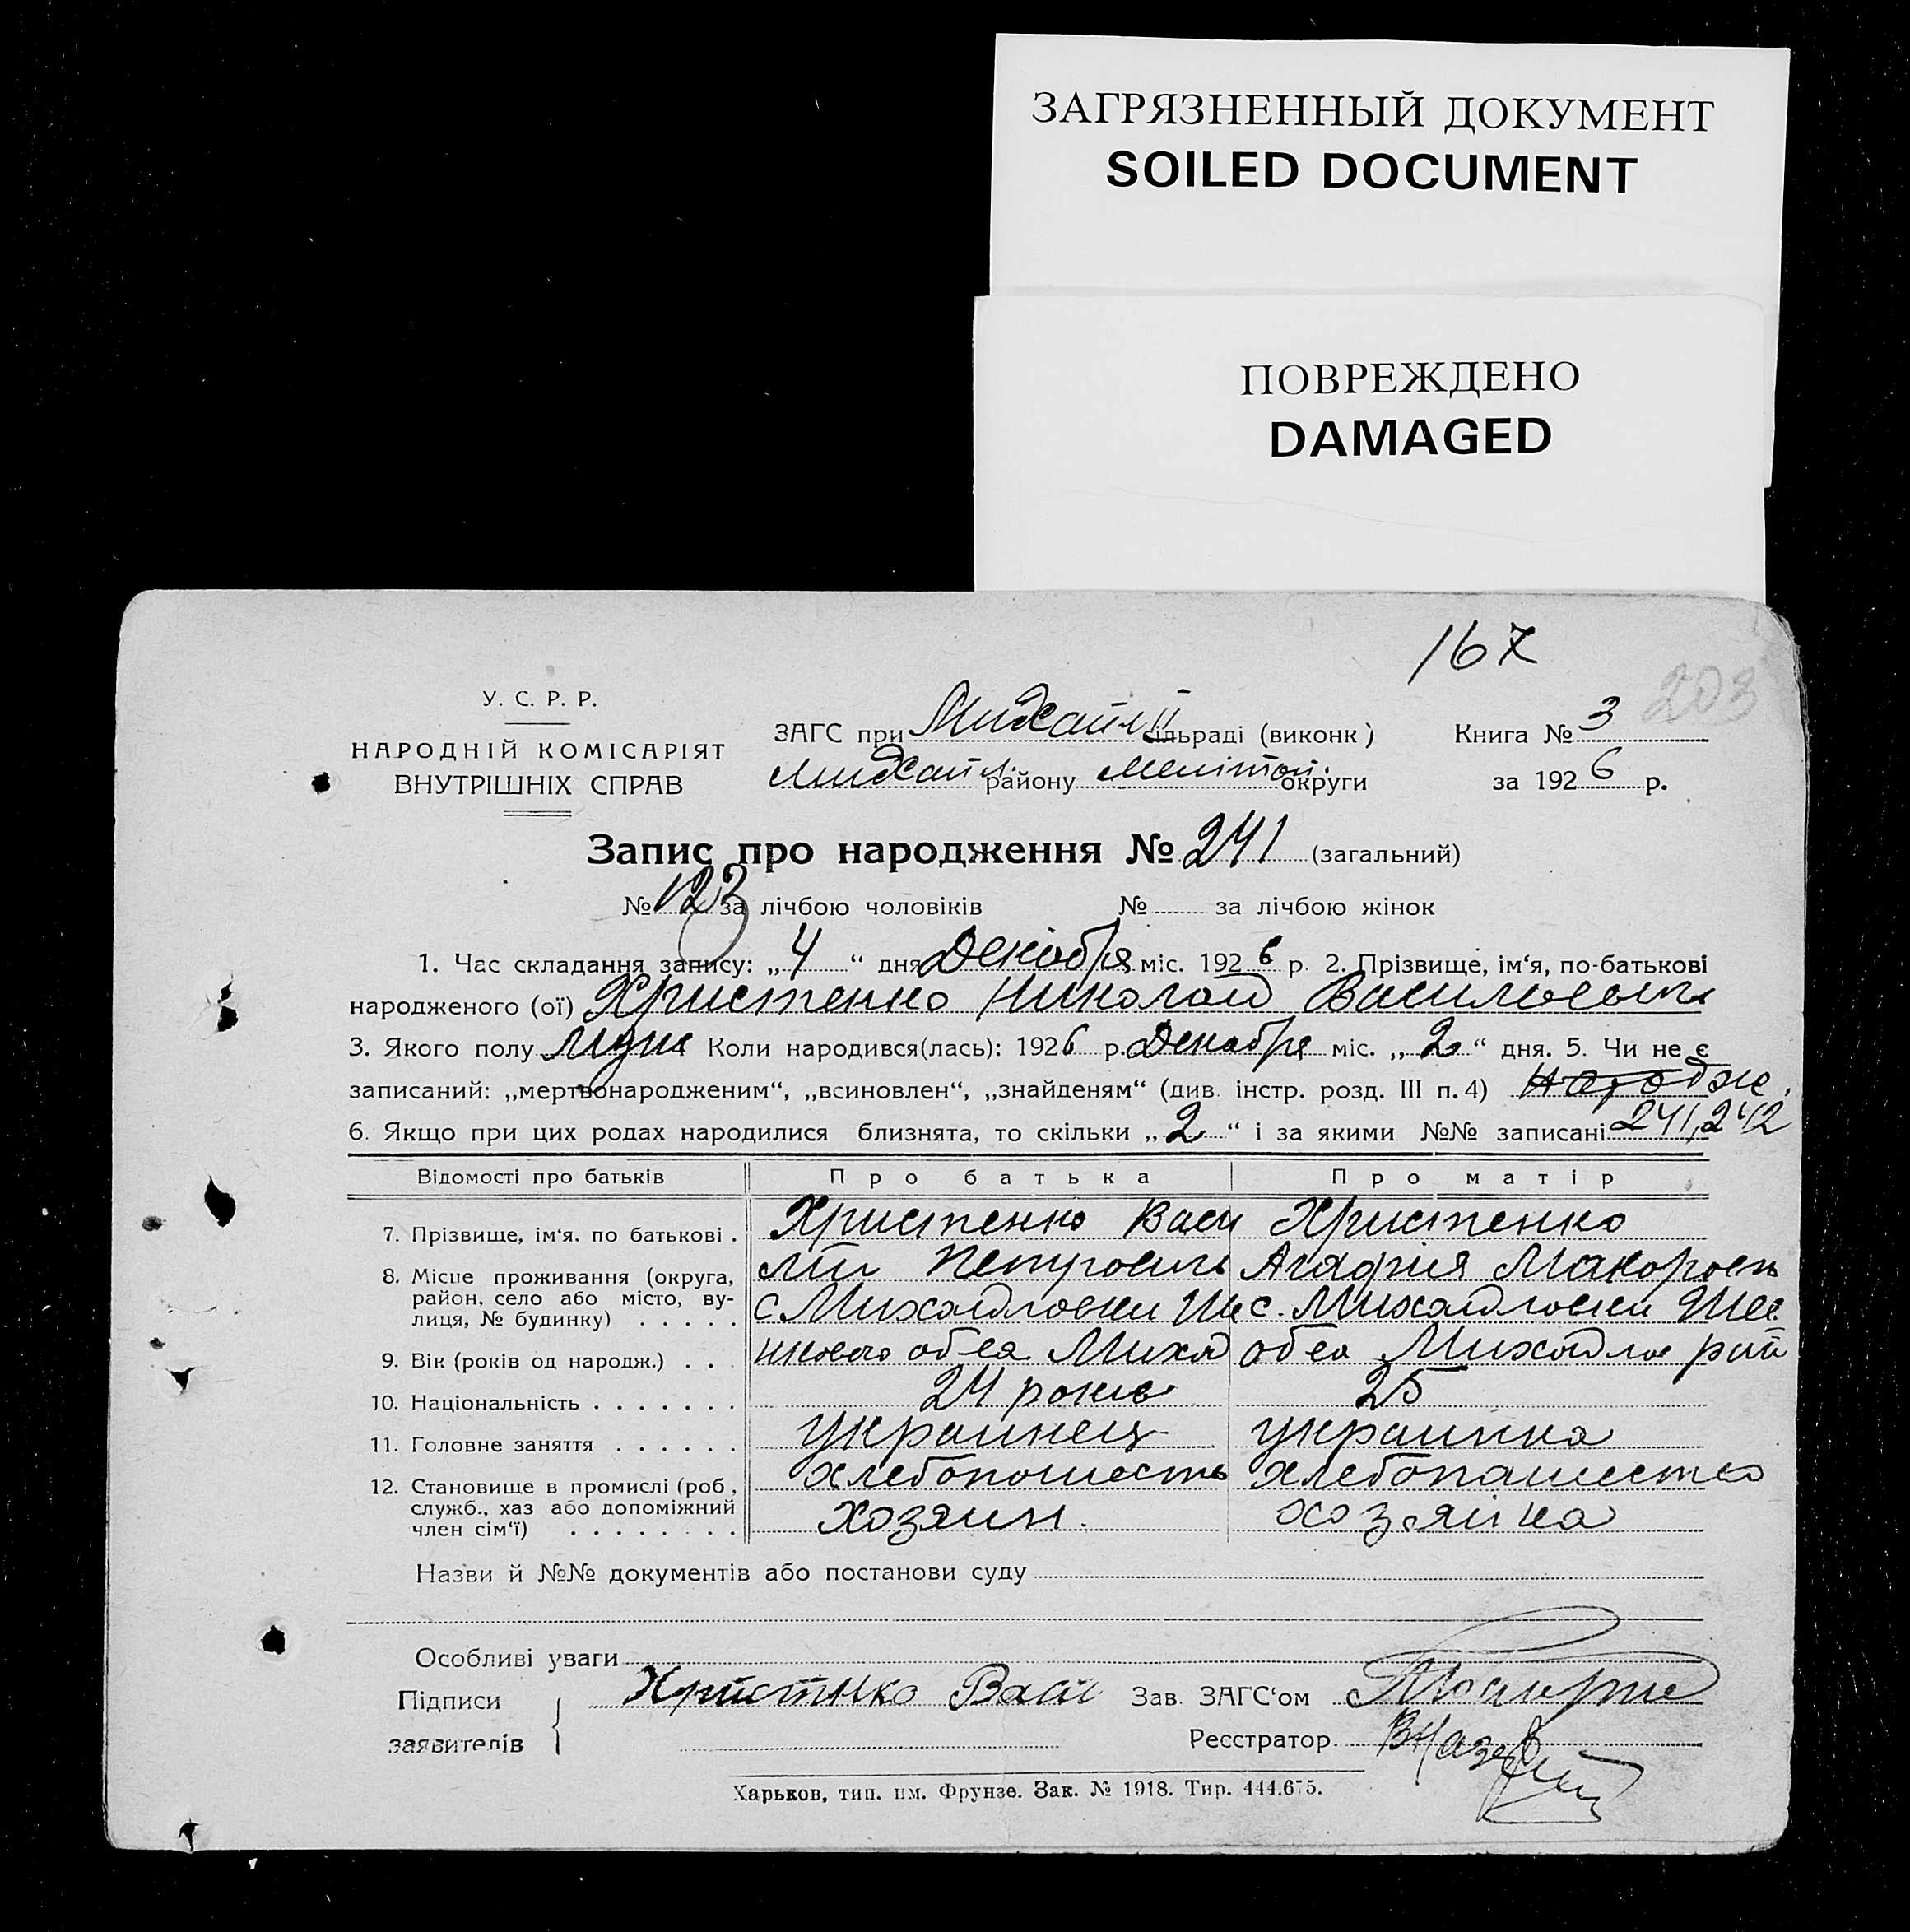 ЗАГРЯЗНЕННЫЙ ДОКУМЕНТ
SOILED DOCUMENT
ПОВРЕЖДЕНО
DAMAGED
167
203
У. С. Р. Р.
НАРОДНІЙ КОМІСАРІЯТ
ВНУТРІШНІХ СПРАВ
ЗАГС при Михайл ІІ сільраді (виконк)
Михайл. району Мелітоп. округи
Книга № 3
за 1926 р.
Запис про народження № 241 (загальний)
№ 123 за лічбою чоловіків № за лічбою жінок
1. Час складання запису: „4“ дня Декабря міс. 1926 р. 2. Прізвище, ім‘я, по-батькові
народженого (ої) Христенко Николай Васильевич
3. Якого полу муж Коли народився(лась): 1926 р. Декабря міс. „2“ дня. 5. Чи не є
записаний: „мертвонародженим“, „всиновлен“, „знайденям“ (див. інстр. розд. III п. 4)
6. Якщо при цих родах народилися близнята, то скільки „2“ і за якими №№ записані 241, 242
Відомості про батьків Про батька Про матір
7. Прізвище, ім‘я. по батькові . Христенко Васи Христенко
8. Місце проживання (округа, лий Петрович Агафия
район, село або місто, ву- с Михайловки с. Михайловки
лиця, № будинку) . . . . .
9. Вік (років од народж.) . . .
24 років 25
10. Національність . . . . . . .
украинец украинка
11. Головне заняття . . . . . .
12. Становище в промислі (роб,
служб., хаз або допоміжний хозяин. хозяйка
член сім‘ї) . . . . . . . .
Назви й №№ документів або постанови суду
Особливі уваги
Підписи Христнко Васи Зав. ЗАГС‘ом
заявителів Реєстратор
Харьков, тип. им. Фрунзе. Зак. № 1918. Тир. 444.675.